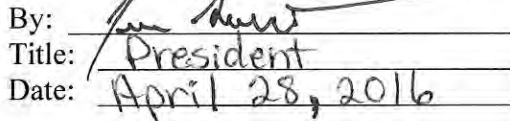 By:
Title: President
Date: April 28, 2016